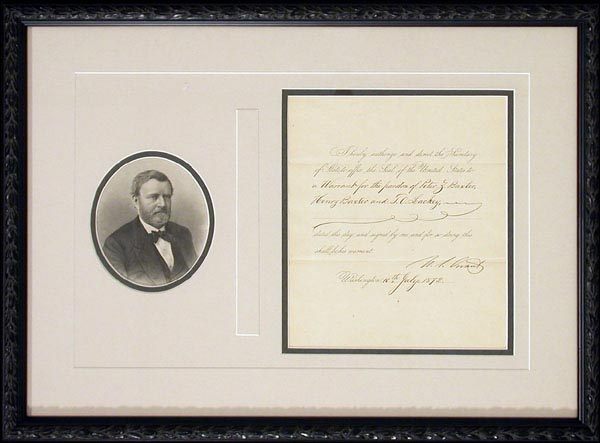 I hereby authorize and direct the Secretary
of State to affix the Seal of the United States to
a Warrant for the pardon of Peter Z. Baxter,
Henry Baxter and T. C. Lackey,
dated this day, and signed by me and for so doing this
shall be his warrant.
U. S. Grant
Washington, 18th July, 1872.